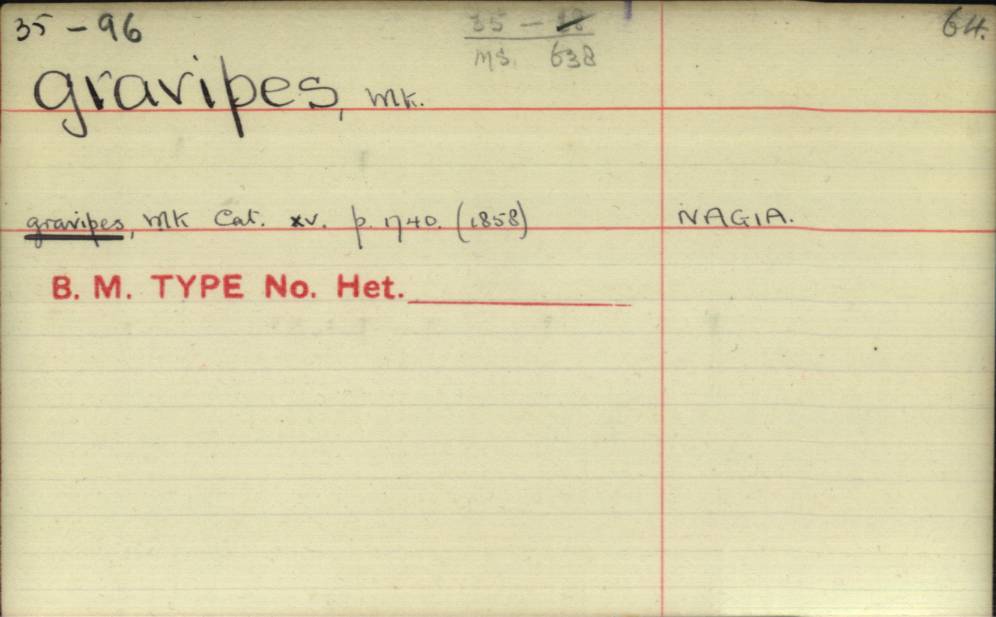 35 - 96
35 - 28
64.
MS. 638
gravipes, Wlk.
gravipes, Wlk Cat. xv. p. 1740. (1858) NAGIA.
B. M. TYPE No. Het.